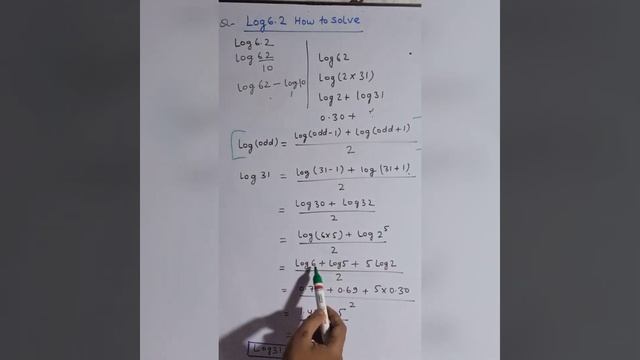 Q- Log 6.2 How to solve
Log 6.2
Log 62/10
log 62 - log 10
1
Log 62
Log (2 × 31)
Log 2 + log 31
0.30 +
Log(odd) = log(odd-1) + log(odd+1) / 2
Log 31 = log (31-1) + log (31+1) / 2
= log 30 + log 32 / 2
= log(6×5) + log 2^5 / 2
= log 6 + log 5 + 5 log 2 / 2
= 0.7 + 0.69 + 5 × 0.30 / 2
= 1.4
=
Log 31